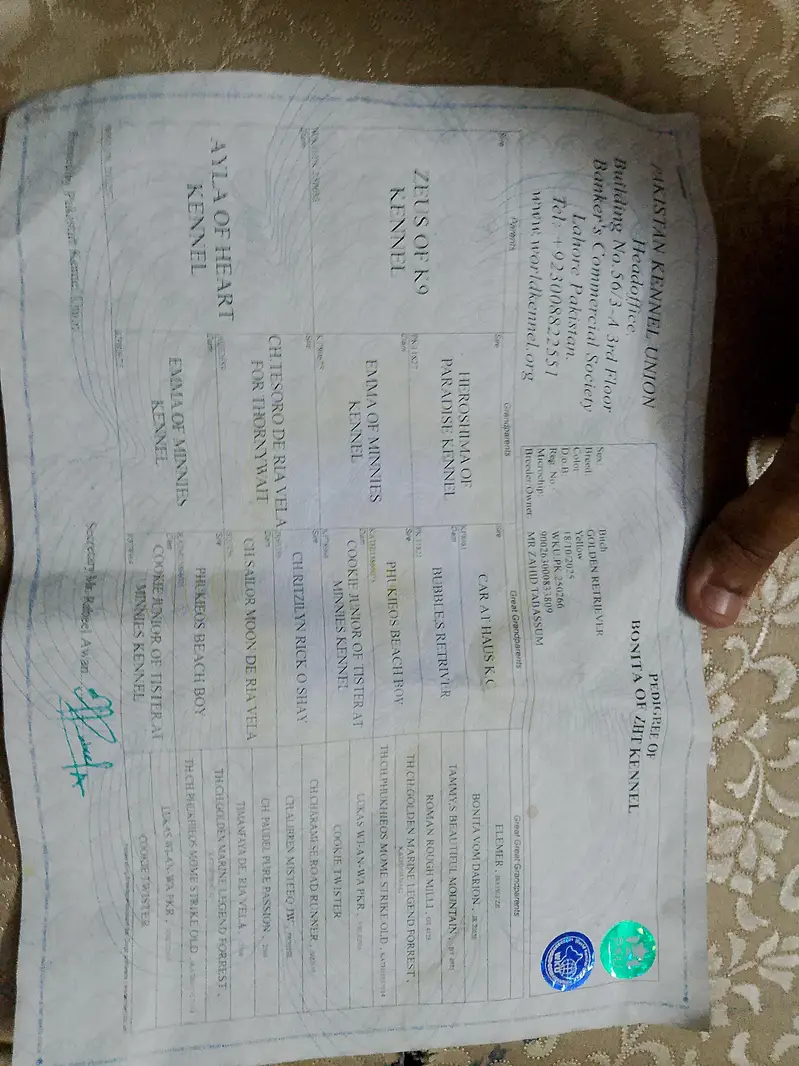 PAKISTAN KENNEL UNION
Headoffice,
Building No.56/3-A 3rd Floor
Banker's Commercial Society
Lahore Pakistan.
Tel: +923008822551
www.worldkennel.org
PEDIGREE OF
BONITA OF ZHT KENNEL
Sex Bitch
Breed GOLDEN RETRIEVER
Color Yellow
D.o.B 18/10/2025
Reg. No WKU.PK.250266
Microchip:
Breeder/Owner MR ZAHID TABASSUM
Parents
Grandparents
Great Grandparents
Great Great Grandparents
Sire
ZEUS OF K9
KENNEL
Dam
AYLA OF HEART
KENNEL
Sire
HEROSHIMA OF
PARADISE KENNEL
Dam
EMMA OF MINNIES
KENNEL
Sire
CH.TESORO DE RIA VELA
FOR THORNYWAIT
Dam
EMMA OF MINNIES
KENNEL
Sire
CAR AT HAUS K.C
Dam
BUBBLES RETRIVER
Sire
PHUKIEOS BEACH BOY
Dam
COOKIE JUNIOR OF TISTER AT
MINNIES KENNEL
Sire
CH.RITZILYN RICK O SHAY
Dam
CH.SAILOR MOON DE RIA VELA
Sire
PHUKIEOS BEACH BOY
Dam
COOKIE JUNIOR OF TISTER AT
MINNIES KENNEL
ELEMER ,
BONITA VOM DARION ,
TAMMYS BEAUTIFUL MOUNTAIN ,
ROMAN ROUGH MILLI ,
TH.CH.GOLDEN MARINE LEGEND FORREST ,
TH.CH.PHUKHIEOS MOME STRIKE OLD ,
LUKAS WI-AN-WA PKR ,
COOKIE TWISTER
CH.CHARAMESE ROAD RUNNER ,
CH.AUBREN MISTEEQ JW ,
CH PAUDEL PURE PASSION ,
TIMANFAYA DE RIA VELA ,
TH.CH.GOLDEN MARINE LEGEND FORREST ,
TH.CH.PHUKHIEOS MOME STRIKE OLD ,
LUKAS WI-AN-WA PKR ,
COOKIE TWISTER
Secretary Mr. Raheel Awan